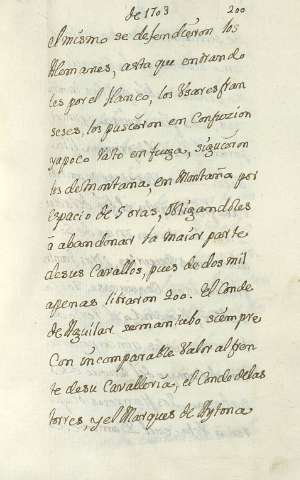 de 1703 200
el mismo se defendieron los
Alemanes, asta que entrando
les por el flanco, los Vsares fran
seses, los pusieron en Confuzion
yapoco rato en fuga, siguieron
los de Montaña, en Montaña por
espacio de 5 oras, obligandoles
a abandonar la maior parte
desus Cavallos, pues de dos mil
apenas libraron 200. El Conde
de Aguilar semantubo siempre
Con incomparable Valor al fren
te desu Cavalleria, el Conde de las
torres, y el Marques de Aytona